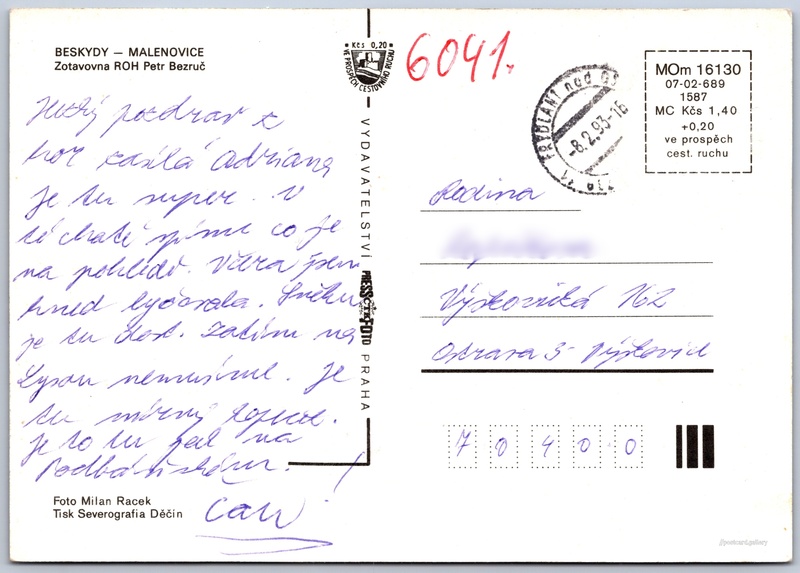 BESKYDY — MALENOVICE
Zotavovna ROH Petr Bezruč
Hezký pozdrav z
hor zasílá Adriana
je tu super. V
té chatě spíme co je
na pohledě. Včera jsem
hned lyžovala. Sněhu
je tu dost. Zatím na
Lysou nemusíme. Je
tu mírný
Je to tu jak na
Podbánském. !
Foto Milan Racek
Tisk Severografia Děčín
Kčs 0,20
VE PROSPĚCH CESTOVNÍHO RUCHU
VYDAVATELSTVÍ
PRESSFOTO
PRAHA
6041.
FRÝDLANT nad
-8.2.93-16
MOm 16130
07-02-689
1587
MC Kčs 1,40
+0,20
ve prospěch
cest. ruchu
Rodina
Výškovická 162
Ostrava 3- Výškovice
7 0 4 0 0
//postcard.gallery